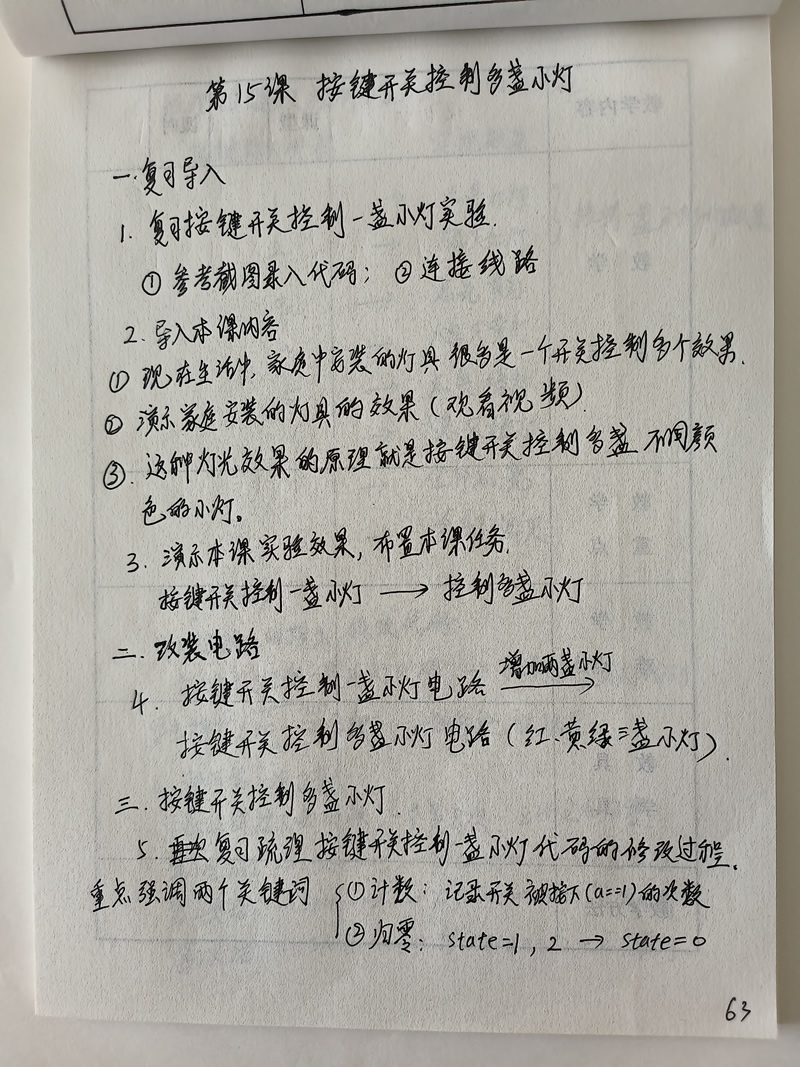 第15课 按键开关控制多盏小灯
一.复习导入
1. 复习按键开关控制一盏小灯实验.
① 参考截图录入代码; ② 连接线路
2. 导入本课内容
① 现在生活中,家庭中安装的灯具很多是一个开关控制多个效果.
② 演示家庭安装的灯具的效果(观看视频).
③. 这种灯光效果的原理就是按键开关控制多盏不同颜
色的小灯。
3. 演示本课实验效果,布置本课任务.
按键开关控制一盏小灯 → 控制多盏小灯
二.改装电路
4. 按键开关控制一盏小灯电路 增加两盏小灯 →
按键开关控制多盏小灯电路(红、黄绿三盏小灯).
三.按键开关控制多盏小灯.
5. 再次复习疏理按键开关控制一盏小灯代码的修改过程.
重点强调两个关键词 ① 计数: 记录开关被按下(a==1)的次数
② 归零: state=1, 2 → state=0
63